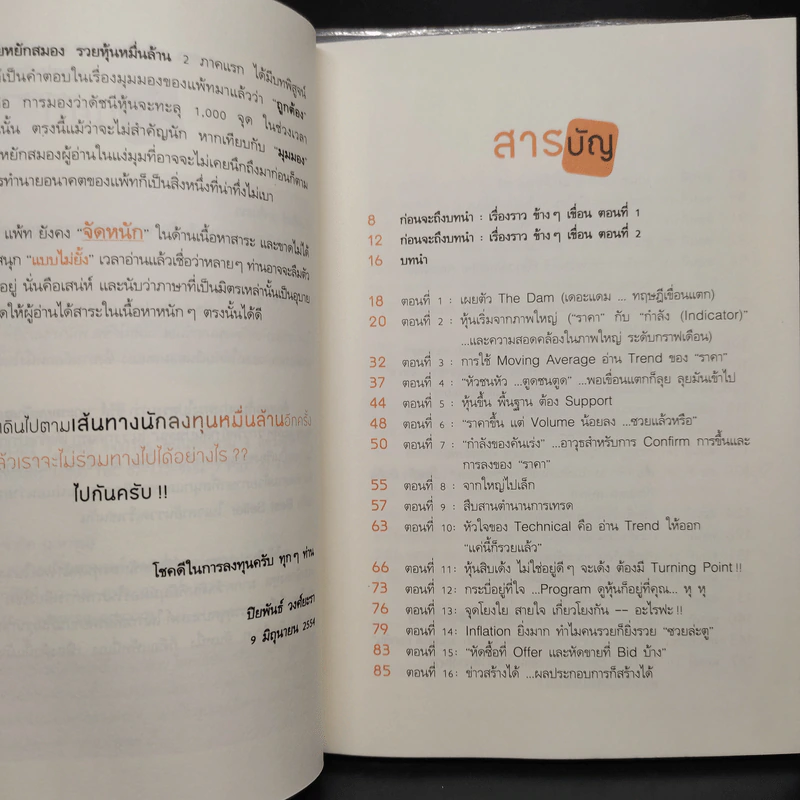 ยหยักสมอง รวยหุ้นหมื่นล้าน 2 ภาคแรก ได้มีบทพิสูจน์
เป็นคำตอบในเรื่องมุมมองของแพ้ทมาแล้วว่า "ถูกต้อง"
อ การมองว่าดัชนีหุ้นจะทะลุ 1,000 จุด ในช่วงเวลา
นั้น ตรงนี้แม้ว่าจะไม่สำคัญนัก หากเทียบกับ "มุมมอง"
หยักสมองผู้อ่านในแง่มุมที่อาจจะไม่เคยนึกถึงมาก่อนก็ตาม
รทำนายอนาคตของแพ้ทก็เป็นสิ่งหนึ่งที่น่าทึ่งไม่เบา
แพ้ท ยังคง "จัดหนัก" ในด้านเนื้อหาสาระ และขาดไม่ได้
สนุก "แบบไม่ยั้ง" เวลาอ่านแล้วเชื่อว่าหลายๆ ท่านอาจจะลืมตัว
อยู่ นั่นคือเสน่ห์ และนับว่าภาษาที่เป็นมิตรเหล่านั้นเป็นอุบาย
ดให้ผู้อ่านได้สาระในเนื้อหาหนักๆ ตรงนั้นได้ดี
เดินไปตามเส้นทางนักลงทุนหมื่นล้านอีกครั้ง
ล้วเราจะไม่ร่วมทางไปได้อย่างไร ??
ไปกันครับ !!
โชคดีในการลงทุนครับ ทุกๆ ท่าน
ปิยพันธ์ วงศ์ยะรา
9 มิถุนายน 2554
สารบัญ
8 ก่อนจะถึงบทนำ : เรื่องราว ข้างๆ เขื่อน ตอนที่ 1
12 ก่อนจะถึงบทนำ : เรื่องราว ข้างๆ เขื่อน ตอนที่ 2
16 บทนำ
18 ตอนที่ 1 : เผยตัว The Dam (เดอะแดม ... ทฤษฎีเขื่อนแตก)
20 ตอนที่ 2 : หุ้นเริ่มจากภาพใหญ่ ("ราคา" กับ "กำลัง (Indicator)"
...และความสอดคล้องในภาพใหญ่ ระดับกราฟเดือน)
32 ตอนที่ 3 : การใช้ Moving Average อ่าน Trend ของ "ราคา"
37 ตอนที่ 4 : "หัวชนหัว ...ตูดชนตูด" ...พอเขื่อนแตกก็ลุย ลุยมันเข้าไป
44 ตอนที่ 5 : หุ้นขึ้น พื้นฐาน ต้อง Support
48 ตอนที่ 6 : "ราคาขึ้น แต่ Volume น้อยลง ...ซวยแล้วหรือ"
50 ตอนที่ 7 : "กำลังของคันเร่ง" ...อาวุธสำหรับการ Confirm การขึ้นและ
การลงของ "ราคา"
55 ตอนที่ 8 : จากใหญ่ไปเล็ก
57 ตอนที่ 9 : สืบสานตำนานการเทรด
63 ตอนที่ 10: หัวใจของ Technical คือ อ่าน Trend ให้ออก
"แค่นี้ก็รวยแล้ว"
66 ตอนที่ 11: หุ้นสิบเด้ง ไม่ใช่อยู่ดีๆ จะเด้ง ต้องมี Turning Point!!
73 ตอนที่ 12: กระบี่อยู่ที่ใจ ...Program ดูหุ้นก็อยู่ที่คุณ... หุ หุ
76 ตอนที่ 13: จุดโยงใย สายใจ เกี่ยวโยงกัน -- อะไรฟะ!!
79 ตอนที่ 14: Inflation ยิ่งมาก ทำไมคนรวยก็ยิ่งรวย "ซวยล่ะตู"
83 ตอนที่ 15: "หัดซื้อที่ Offer และหัดขายที่ Bid บ้าง"
85 ตอนที่ 16: ข่าวสร้างได้ ...ผลประกอบการก็สร้างได้